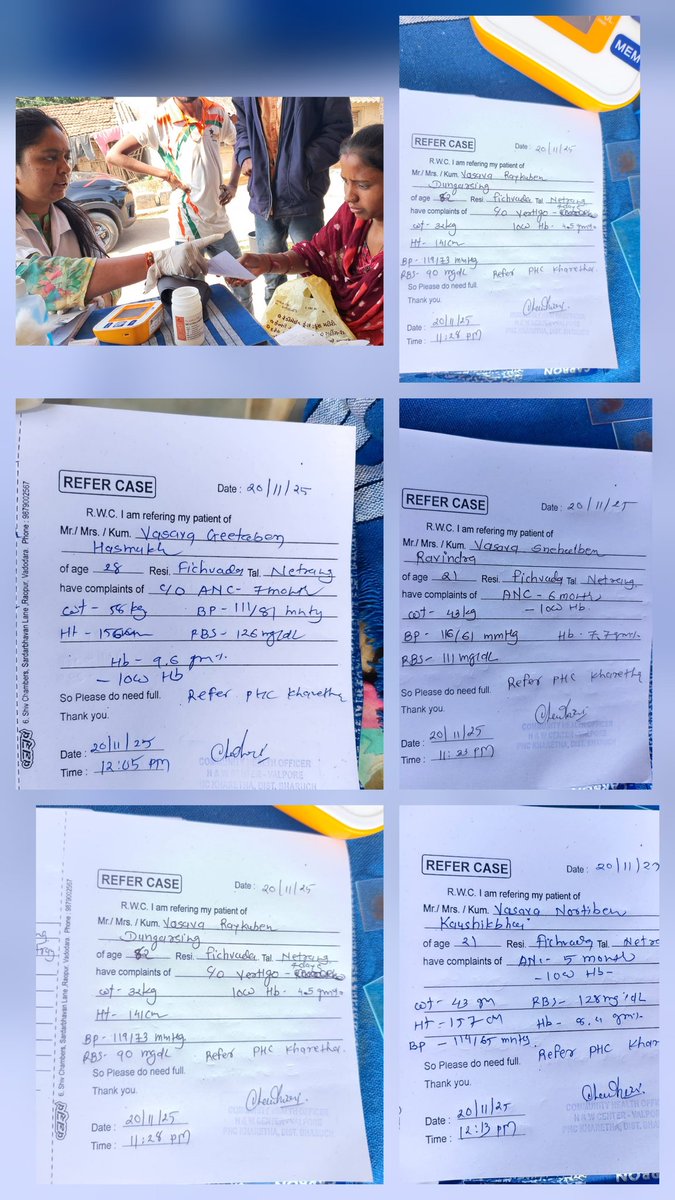 MEM
REFER CASE
Date : 20/11/25
R.W.C. I am refering my patient of
Mr./ Mrs. / Kum. Vasava Raykuben
Dungarsing
of age 52 Resi. Fichvada Tal. Netrang
have complaints of C/O Vertigo - 7 days
wt - 32kg low Hb - 4.5 gm%
Ht - 141cm
BP - 119/73 mmHg
RBS - 90 mgdL Refer PHC Kharetha
So Please do need full.
Thank you.
Date : 20/11/25
Time : 11:28 PM
REFER CASE
Date : 20/11/25
R.W.C. I am refering my patient of
Mr./ Mrs. / Kum. Vasava Geetaben
Hasmukh
of age 28 Resi. Fichvada Tal. Netrang
have complaints of C/O ANC - 7 month
wt - 58kg BP - 111/81 mmHg
Ht - 156cm RBS - 126 mg/dL
Hb - 9.6 gm%
- low Hb
So Please do need full. Refer PHC Kharetha
Thank you.
Date : 20/11/25
Time : 12:05 PM
COMMUNITY HEALTH OFFICER
H & W CENTER - VALPORE
PHC KHARETHA, DIST. BHARUCH
6, Shiv Chambers, Sardarbhavan Lane, Raopur, Vadodara Phone : 9879002567
REFER CASE
Date : 20/11/25
R.W.C. I am refering my patient of
Mr./ Mrs. / Kum. Vasava Snehalben
Ravindra
of age 21 Resi. Fichvada Tal. Netrang
have complaints of ANC - 6 month
wt - 43kg - low Hb
BP - 116/61 mmHg Hb - 7.7 gm%
RBS - 111 mg/dL
So Please do need full. Refer PHC Kharetha
Thank you.
Date : 20/11/25
Time : 11:23 PM
REFER CASE
Date : 20/11/25
R.W.C. I am refering my patient of
Mr./ Mrs. / Kum. Vasava Raykuben
Dungarsing
of age 52 Resi. Fichvada Tal. Netrang
have complaints of C/O Vertigo - 7 days
wt - 32kg low Hb - 4.5 gm%
Ht - 141cm
BP - 119/73 mmHg
RBS - 90 mgdL Refer PHC Kharetha.
So Please do need full.
Thank you.
Date : 20/11/25
Time : 11:28 PM
COMMUNITY HEALTH OFFICER
H & W CENTER - VALPORE
PHC KHARETHA, DIST. BHARUCH
6, Shiv Chambers, Sardarbhavan Lane, Raopur, Vadodara Phone : 9879002567
REFER CASE
Date : 20/11/25
R.W.C. I am refering my patient of
Mr./ Mrs. / Kum. Vasava Nortiben
Kaushikbhai
of age 21 Resi. Fichvada Tal. Netra
have complaints of ANC - 5 month
- low Hb -
wt - 43 gm RBS - 128 mg/dL
Ht - 157 CM Hb - 8.4 gm%
BP - 114/65 mmHg
So Please do need full. Refer PHC Khar
Thank you.
Date : 20/11/25
Time : 12:13 PM
COMMUNITY HEALTH OFFICER
H & W CENTER - VALPORE
PHC KHARETHA, DIST. BHARUCH